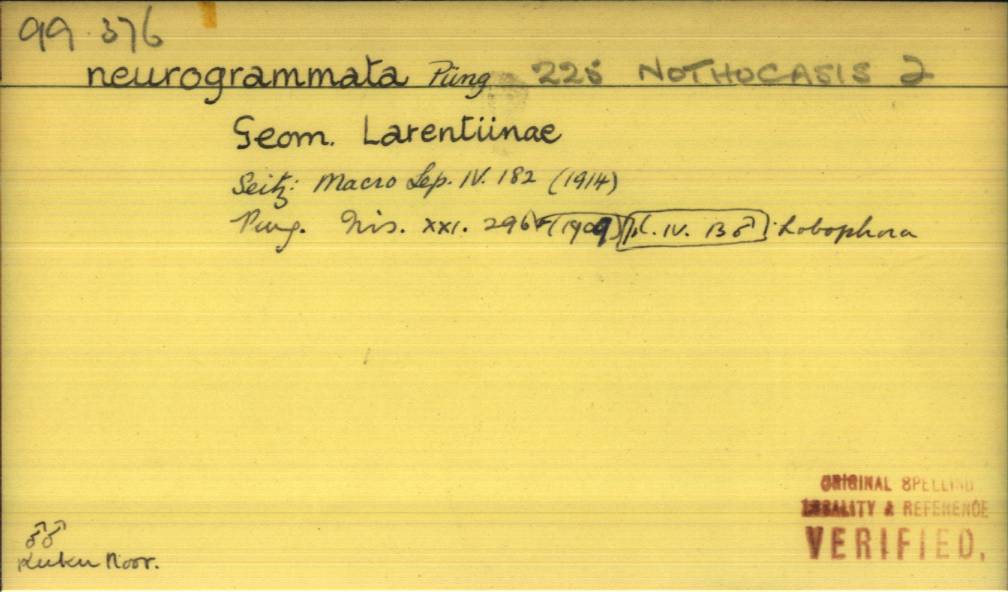 99.376
neurogrammata Püng 225 NOTHOCASIS 2
Geom. Larentiinae
Seitz: Macro Lep. IV. 182 (1914)
Pung. Iris. XXI. 296 (1909) pl. IV. 13♂ : Lobophora
♂♂
Kuku Noor.
ORIGINAL SPELLING
LOCALITY & REFERENCE
VERIFIED.